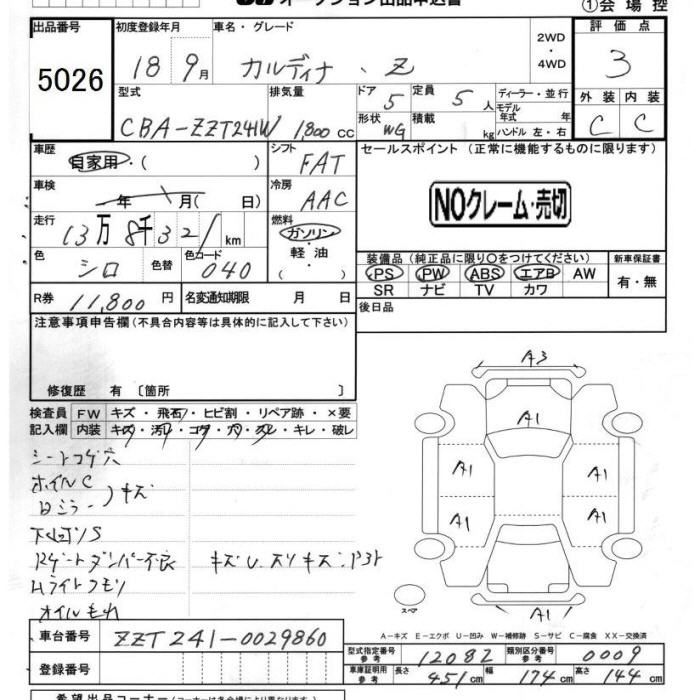 オークション出品申込書
①会場控
出品番号 初度登録年月 車名・グレード 2WD・4WD 評価点
5026 18 9月 カルディナ Z 3
型式 排気量 ドア 5 定員 5人 ディーラー・並行 外装 内装
CBA-ZZT241W 1,800 cc 形状 WG 積載 kg モデル年式 年 ハンドル 左・右 C C
車歴 自家用・( ) シフト FAT セールスポイント (正常に機能するものに限ります)
車検 年 月( 日) 冷房 AAC
NOクレーム・売切
走行 13万8千321km 燃料 ガソリン・軽油・( )
色 シロ 色替 色コード 040
装備品(純正品に限り〇をつけてください) 新車保証書
PS PW ABS エアB AW 有・無
SR ナビ TV カワ
R券 11,800円 名変通知期限 月 日 後日品
注意事項申告欄(不具合内容等は具体的に記入して下さい)
修復歴 有 〔箇所 〕
検査員 FW キズ・飛石・ヒビ割・リペア跡・×要
記入欄 内装 キズ・汚れ・コゲ・穴・スレ・キレ・破レ
シートコゲ穴
ホイルC
日ミラー)キズ
下回りS
Rゲートダンパー不良 キズU.スリキズ
Hライトクモリ
オイルもれ
A3
A1
A1 A1
A1 A1
A1
スペア
A-キズ E-エクボ U-凹み W-補修跡 S-サビ C-腐食 XX-交換済
車台番号 ZZT241-0029860
登録番号
型式指定番号 参考 12082 類別区分番号 参考 0009
車庫証明用 参考 長さ 451cm 幅 174cm 高さ 144cm
希望出品コーナー